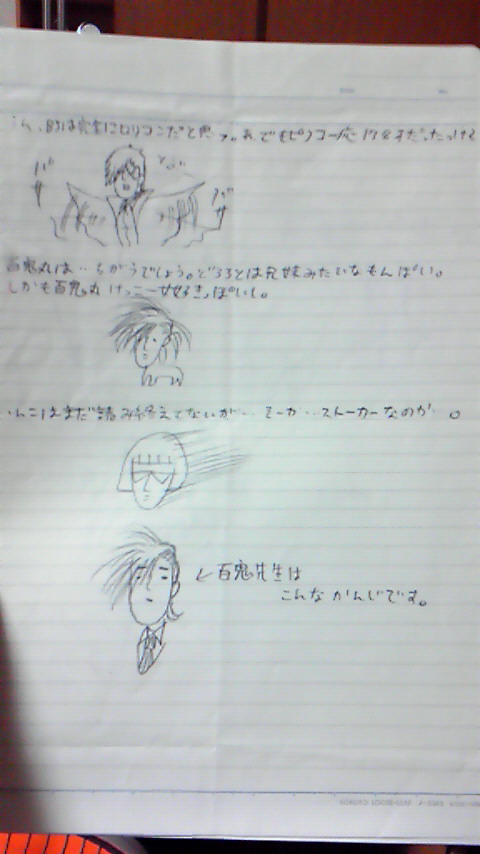 、BJは完全にロリコンだと思う。あ、でもピノコ一応 17、8才だったっけ
バサ
バサ
百鬼丸は‥ちがうでしょう。どろろとは兄妹みたいなもんぽい。
しかも百鬼丸けっこー女好きっぽいし。
はまだ読み終えてないが‥
ストーカーなのか 。
↙百鬼先生は
こんな かんじです。